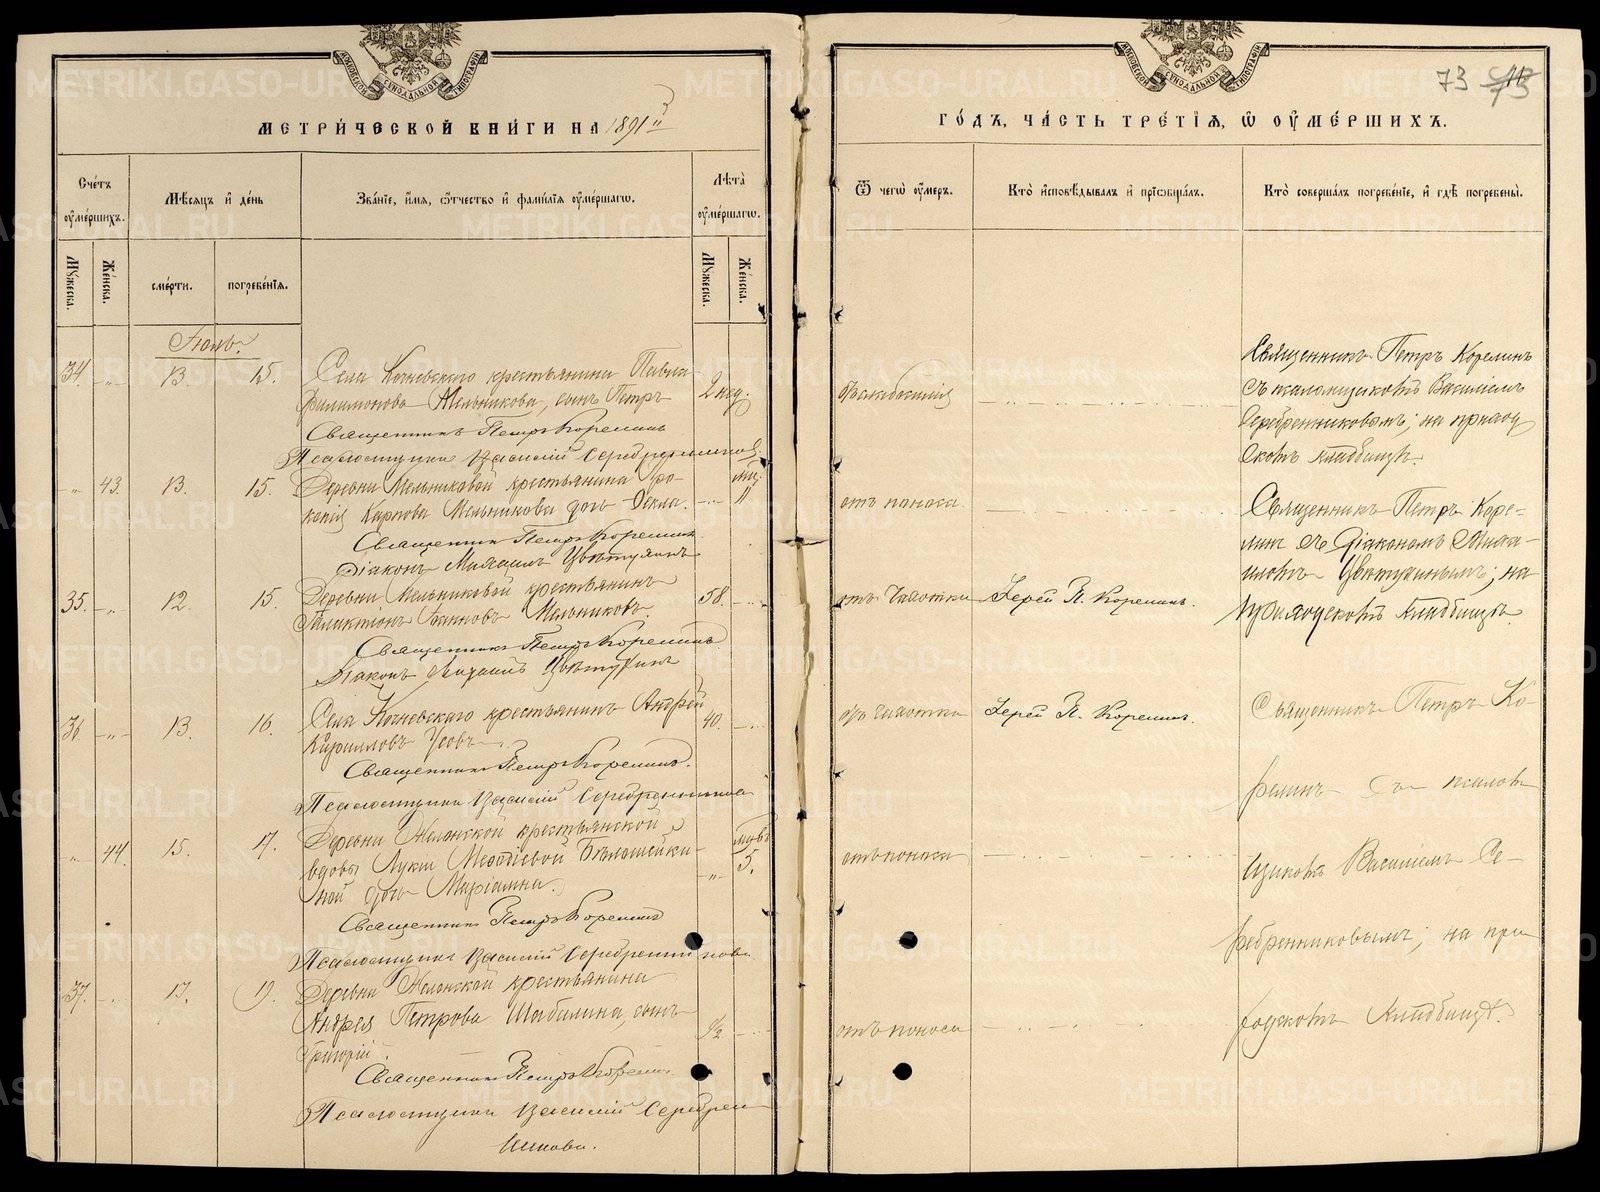 МЕТРИ́ЧЕСКОЙ КНИ́ГИ НА 1891й
Сче́тъ ᲂу҆ме́ршихъ.
Мѣ́сяцъ и҆ де́нь
Зва́нїе, и҆́мя, ѻ҆́тчество и҆ фами́лїя ᲂу҆ме́ршагѡ.
Лѣ́та ᲂу҆ме́ршагѡ.
Му́жеска.
Же́нска.
сме́рти.
погребе́нїя.
Му́жеска.
Же́нска.
Іюль.
34. -„- 13. 15. Села Кочневскаго крестьянина Павла
Филимонова Мельникова, сынъ Петръ 2 нед.
Священникъ Петръ Корелинъ
Псаломщикъ Василій Серебренниковъ
-„- 43. 13. 15. Деревни Мельниковой крестьянина Про-
копія Карпова Мельникова дочь Ѳекла. -„- мц. 11
Священникъ Петръ Корелинъ
Діаконъ Михаилъ Цвѣтухинъ
35. -„- 12. 15. Деревни Мельниковой крестьянинъ
Галактіонъ Мельниковъ. 58. -„-
Священникъ Петръ Корелинъ
Діаконъ Михаилъ Цвѣтухинъ
36 -„- 13. 16. Села Кочневскаго крестьянинъ Андрей
Кирилловъ Усовъ 40. -„-
Священникъ Петръ Корелинъ.
Псаломщикъ Василій Серебренниковъ
„ 44. 15. 17. Деревни крестьянской
вдовы Лукіи Меѳодіевой Бѣлошейки-
ной дочь Маріамна. -„- 5.
Священникъ Петръ Корелинъ
Псаломщикъ Василій Серебренниковъ
37. -„- 17. 19. Деревни крестьянина
Андрея Петрова Шабалина, сынъ
Григорій. ½ -„-
Священникъ Петръ Корелинъ
Псаломщикъ Василій Серебрен
никовъ.
73
ГО́ДЪ, ЧА́СТЬ ТРЕ́ТЇЯ, Ѡ҆ ОУ҆МЕ́РШИХЪ.
Ѿ чегѡ̀ ᲂу҆́меръ.
Кто̀ и҆сповѣ́дывалъ и҆ прїѡбща́лъ.
Кто̀ соверша́лъ погребе́нїе, и҆ гдѣ̀ погребены̀.
отъ слабости
Священникъ Петръ Корелинъ
съ псаломщикомъ Василіемъ
Серебренниковымъ; на приход
скомъ кладбищѣ.
отъ поноса
Священникъ Петръ Коре-
линъ съ Діакономъ Миха-
иломъ Цвѣтухинымъ; на
приходскомъ кладбищѣ.
отъ чахотки Іерей П. Корелинъ.
отъ чахотки Іерей П. Корелинъ.
Священникъ Петръ Ко-
релинъ съ псалом
отъ поноса
щикомъ Василіемъ Се-
ребренниковымъ; на при
отъ поноса
ходскомъ кладбищѣ.
METRIKI.GASO-URAL.RU